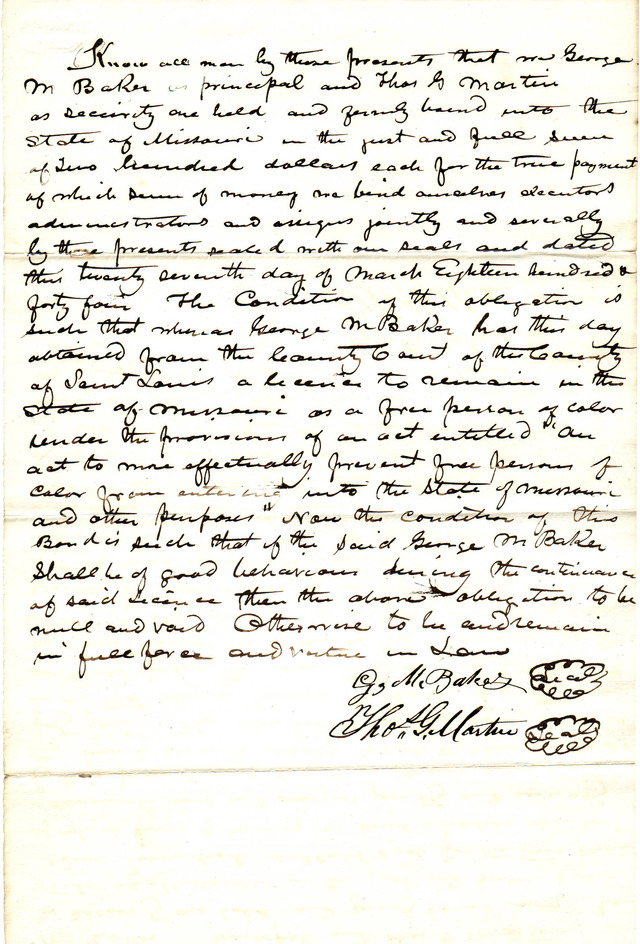 Know all men by these presents that we George
M Baker as principal and Thos G Martin
as security are held and firmly bound unto the
State of Missouri in the just and full sum
of Two hundred dollars each for the true payment
of which sum of money we bind ourselves executors
administrators and assigns jointly and severally
by these presents sealed with our seals and dated
this twenty seventh day of March Eighteen hundred &
forty four The Condition of this obligation is
such that whereas George M Baker has this day
obtained from the County Court of the County
of Saint Louis a licence to remain in the
State of Missouri as a free person of color
under the provisions of an act entitled "An
act to more effectually prevent free persons of
color from entering into the State of Missouri
and other purposes" Now the condition of this
Bond is such that if the said George M Baker
Shall be of good behaviour during the continuance
of said licence then the above obligation to be
null and void Otherwise to be and remain
in full force and virtue in Law
Go M. Baker Seal
Thos. G. Martin Seal